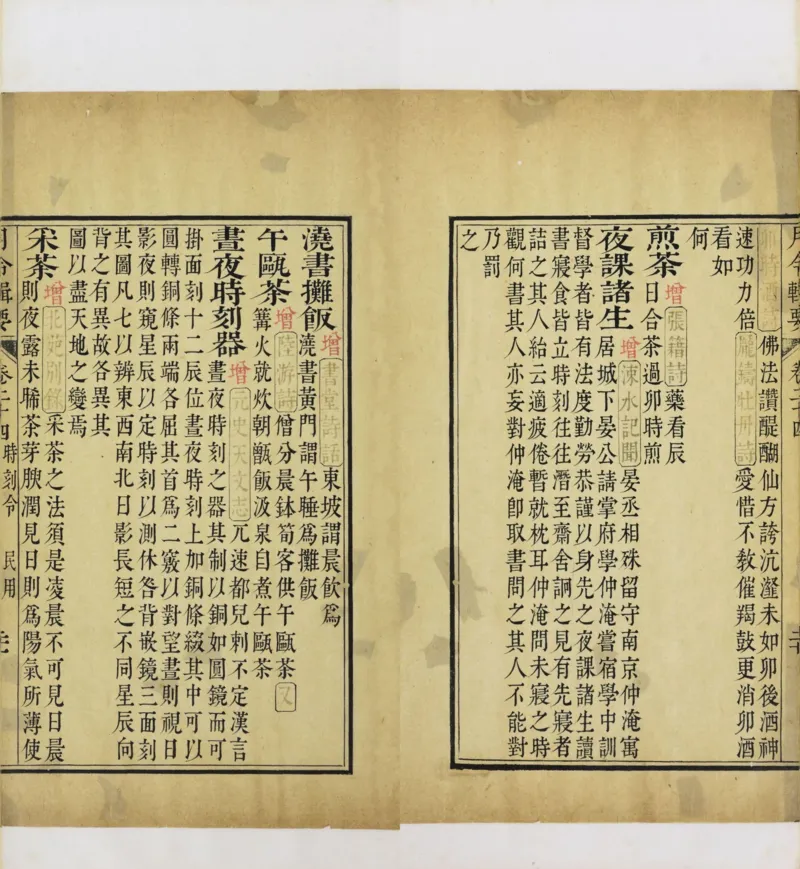 月令輯要 卷二十四
卯時酒詩佛法讚醍醐仙方誇沆瀣未如卯後酒神
速功力倍龐鑄牡丹詩愛惜不教催羯鼓更消卯酒
看如
何
煎茶增張籍詩藥看辰
日合茶過卯時煎
夜課諸生增涑水記聞晏丞相殊留守南京仲淹寓
居城下晏公請掌府學仲淹嘗宿學中訓
督學者皆有法度勤勞恭謹以身先之夜課諸生讀
書寢食皆立時刻往往潛至齋舍詗之見有先寢者
詰之其人紿云適疲倦暫就枕耳仲淹問未寢之時
觀何書其人亦妄對仲淹卽取書問之其人不能對
乃罰
之
澆書攤飯增書堂詩話東坡謂晨飲爲
澆書黃門謂午睡爲攤飯
午甌茶增陸游詩僧分晨鉢筍客供午甌茶又
篝火就炊朝甑飯汲泉自煮午甌茶
晝夜時刻器增元史天文志元速都兒剌不定漢言
晝夜時刻之器其制以銅如圓鏡而可
掛面刻十二辰位晝夜時刻上加銅條綴其中可以
圓轉銅條兩端各屈其首爲二竅以對望晝則視日
影夜則窺星辰以定時刻以測休咎背嵌鏡三面刻
其圖凡七以辨東西南北日影長短之不同星辰向
背之有異故各異其
圖以盡天地之變焉
采茶增北苑別錄采茶之法須是凌晨不可見日晨
則夜露未晞茶芽腴潤見日則爲陽氣所薄使
月令輯要 卷二十四 時刻令 民用